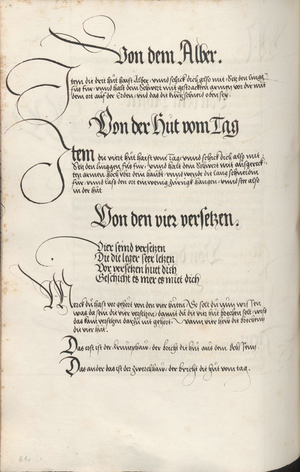 Von dem Alber.
Item die drit hut haist Alber vnnd schick dich also mit Setz den lingken
fůs fur vnnd halt dein Schwert mit gestrackten armen vor dir mit
dem ort auf der Erden vnnd das die kurtz schneid oben sey
Von der Hůt vom Tag
Item die vierd hut haist vom Tag vnnd schick dich also mit
Setz den lingken fůs fur vnnd halt dein Schwert mit ausgereckten
armen hoch vber dein haubt vnnd wende die lang schneiden
fur vnnd lass den ort ein wenig hinden hangen vnnd stee also
in der hůt
Von den vier versetzen.
Vier seind versetzen
Die die leger seer letzen
Vor versetzen huet dich
Geschicht es mer es müet dich
Merck du hast vor gehört von den vier hůten So solt du yetz wissen
was da sein die vier versetzen damit du die vier hůt brechen solt
vier die brechen
die vier hůt
Das erst ist der krumphaw der bricht die hůt aus dem
Das ander das ist der zwerchhaw der bricht die hůt vom tag.